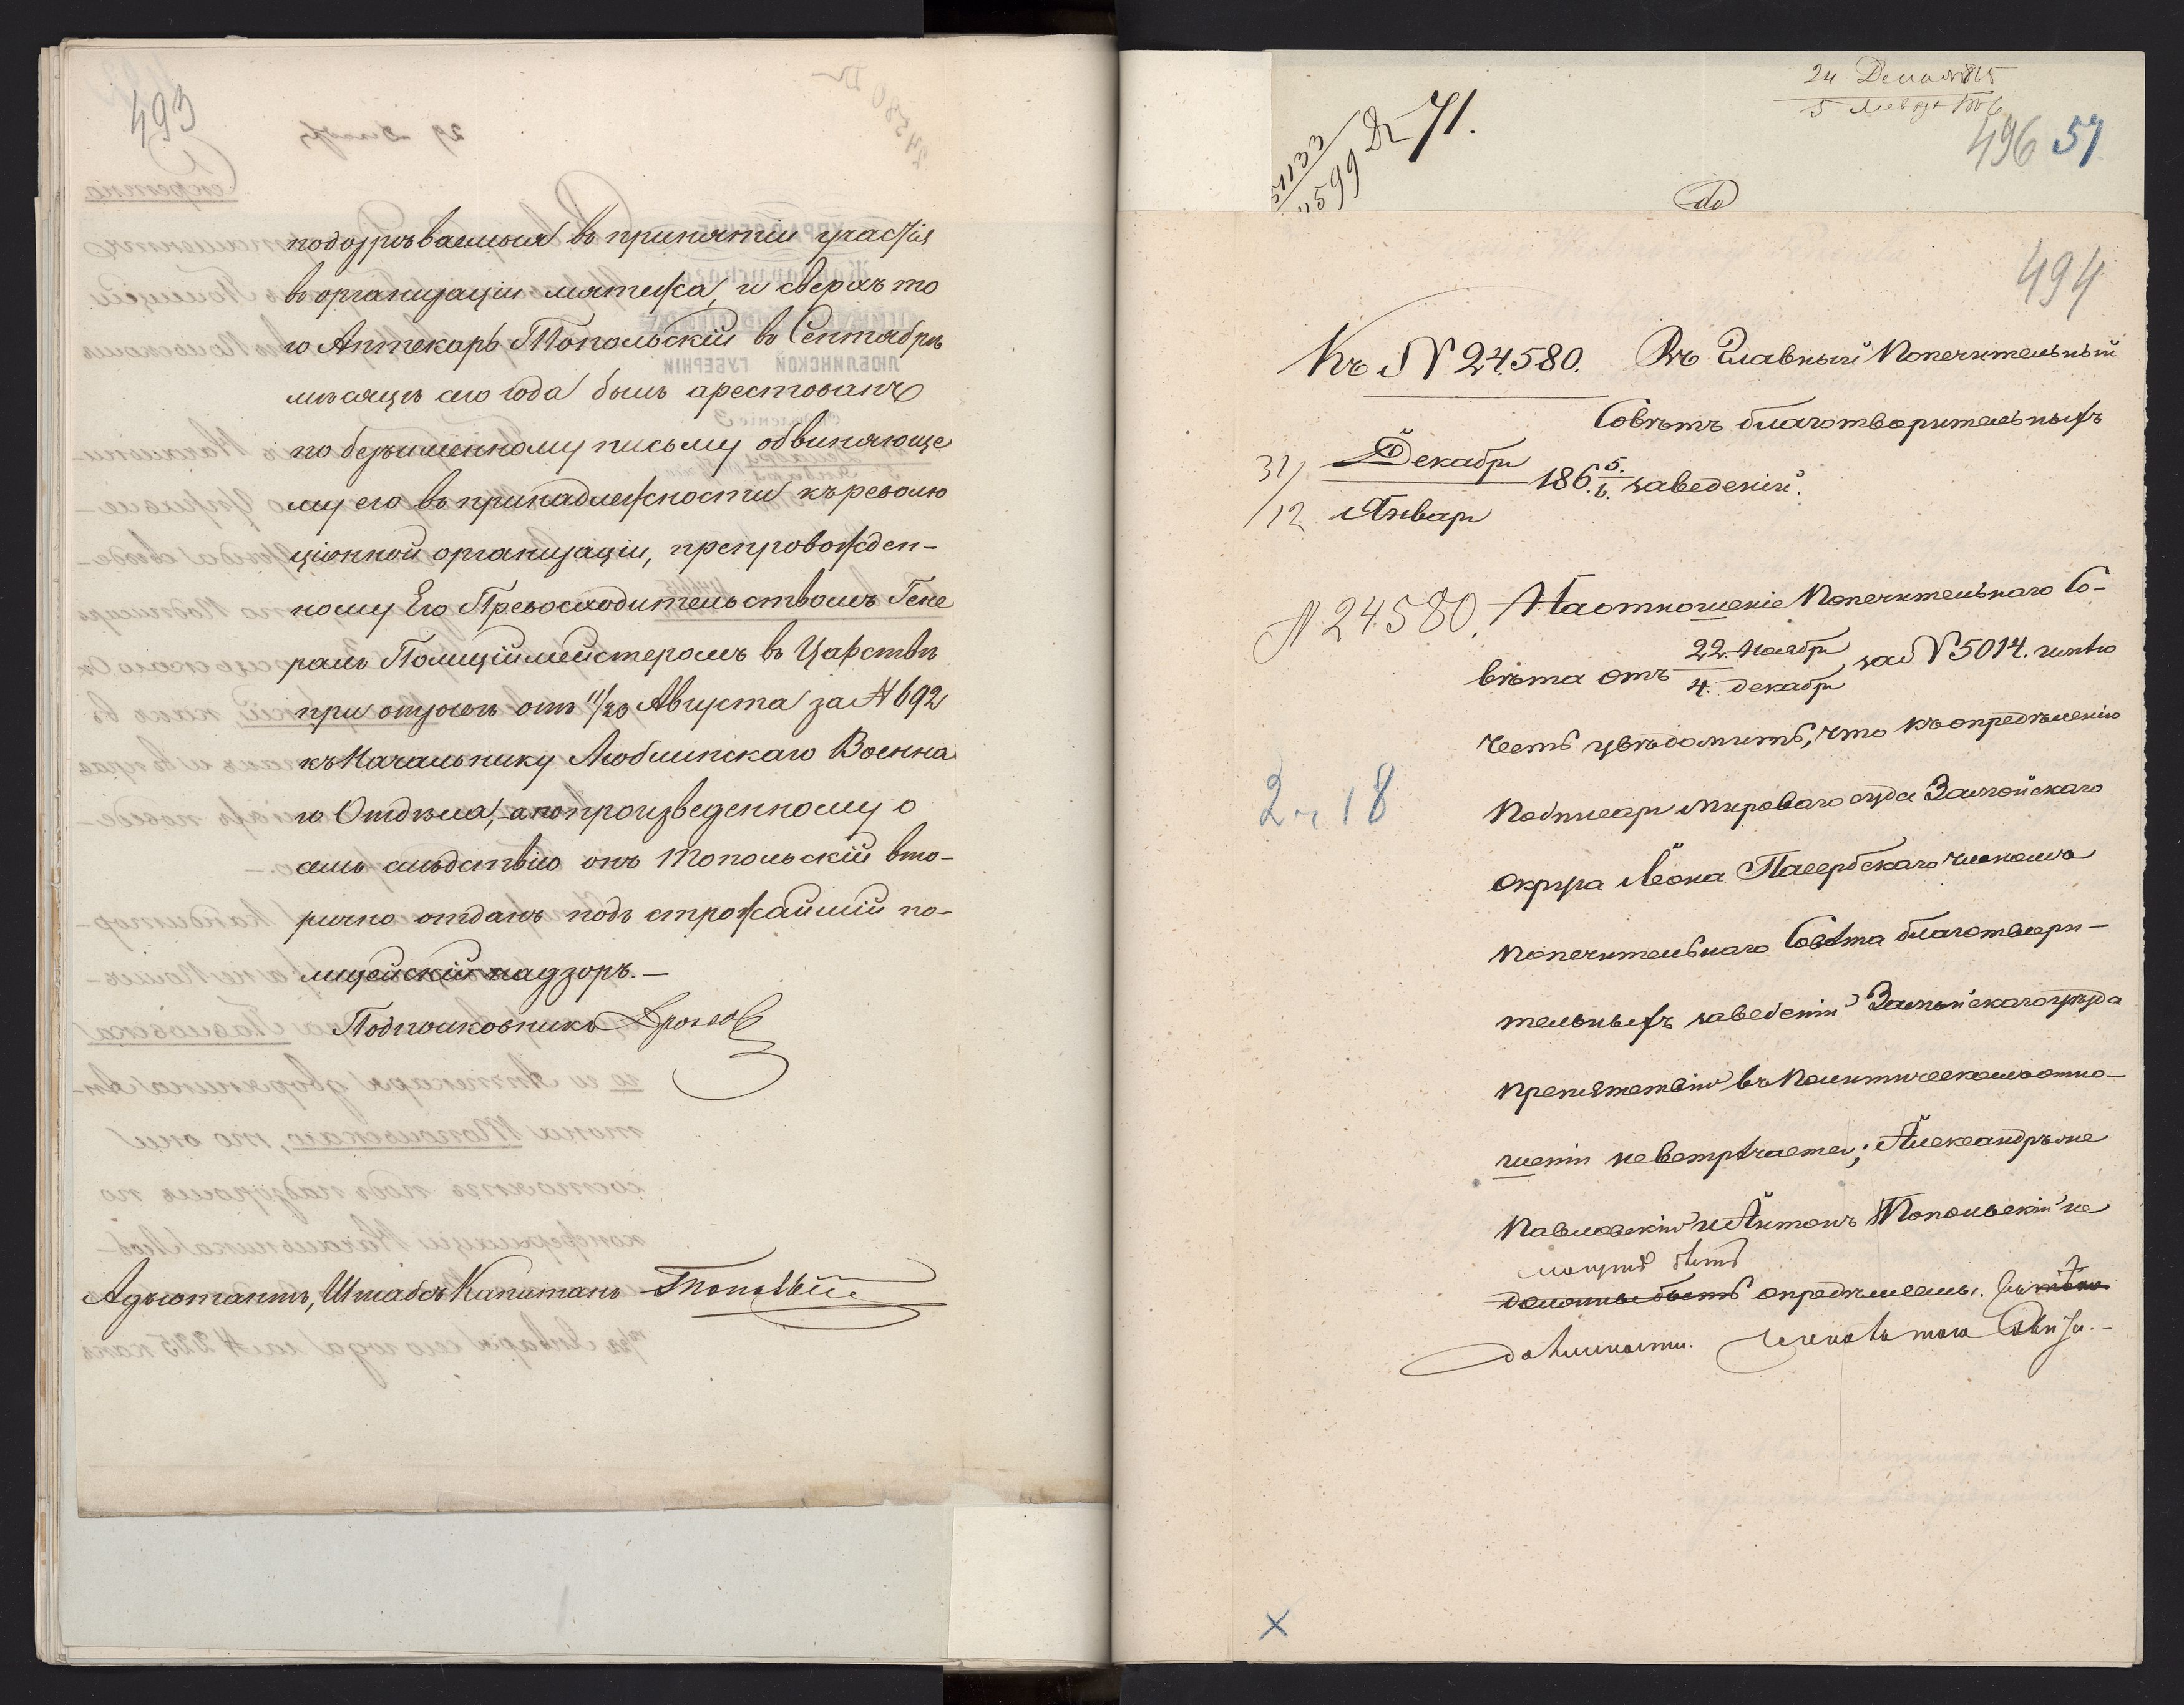 493
подозрѣваемыя въ принятіи участія
въ организаціи мятежа, и сверхъ то
го Аптекарь Топольскій въ Сентябрѣ
мѣсяцѣ сего года былъ арестованъ
по безъименному письму обвиняюще
му его въ принадлежности къ револю
ціонной организаціи, препровожден-
ному Его Превосходительствомъ Гене
ралъ Полицiймейстеромъ въ Царствѣ
при отзывѣ отъ 11/23 Августа за № 692
къ Начальнику Люблинскаго Военна
го Отдѣла, а по произведенному о
семъ слѣдствію онъ Топольскій вто-
рично отданъ подъ строжайшій по-
лицейскій надзоръ. —
Подполковникъ
Адъютантъ, Штабсъ Капитанъ
24 Декабр 1865
5 Январ 1866
51133
71.
496 57
494
Къ № 24580. Въ Главный Попечительный
Совѣтъ благотворительныхъ
31/12 Декабр/Январ 186 5./6. заведеній.
№ 24580. На отношеніе Попечительнаго Со-
вѣта отъ 22. Ноябр/4. декабр за № 5014. имѣю
честь увѣдомить, что къ опредѣленію
Подписар Мироваго суда Замойскаго
округа Леона Пасербскаго членомъ
Попечительнаго Совѣта благотвори-
тельныхъ заведеній Замойскаго уѣзда
препятствій въ Политическомъ отно-
шеніи не встрѣчается; Александръ же
Павловскій и Антонъ Топольскій не
могутъ быть
должны быть опредѣлены.
должности. членовъ того Совѣта. -
2 ч 18